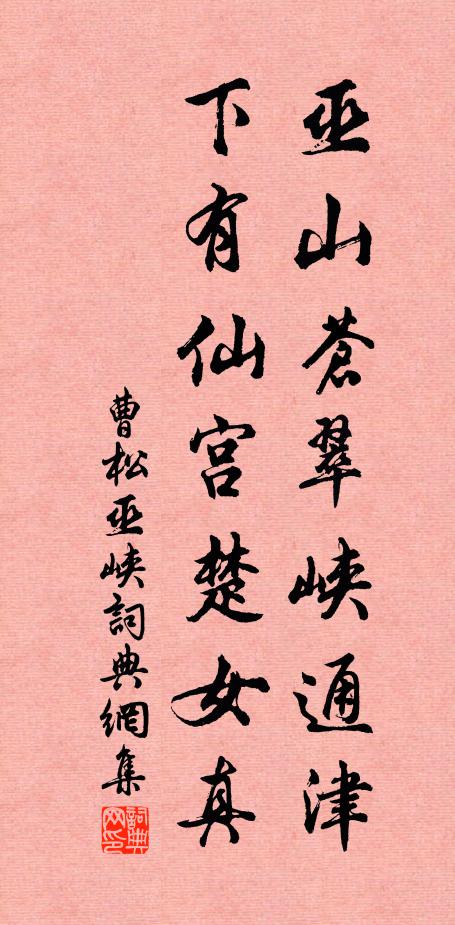 巫山蒼翠峡通津
下有仙宫楚女真
曹松巫峡詞典網集
詞典网印